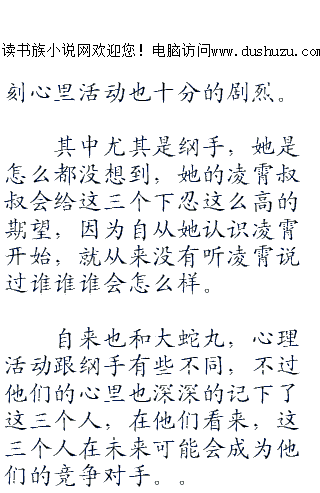 读书族小说网欢迎您！电脑访问www.dushuzu.com
刻心里活动也十分的剧烈。
其中尤其是纲手，她是
怎么都没想到，她的凌霄叔
叔会给这三个下忍这么高的
期望，因为自从她认识凌霄
开始，就从来没有听凌霄说
过谁谁谁会怎么样。
自来也和大蛇丸，心理
活动跟纲手有些不同，不过
他们的心里也深深的记下了
这三个人，在他们看来，这
三个人在未来可能会成为他
们的竞争对手。。